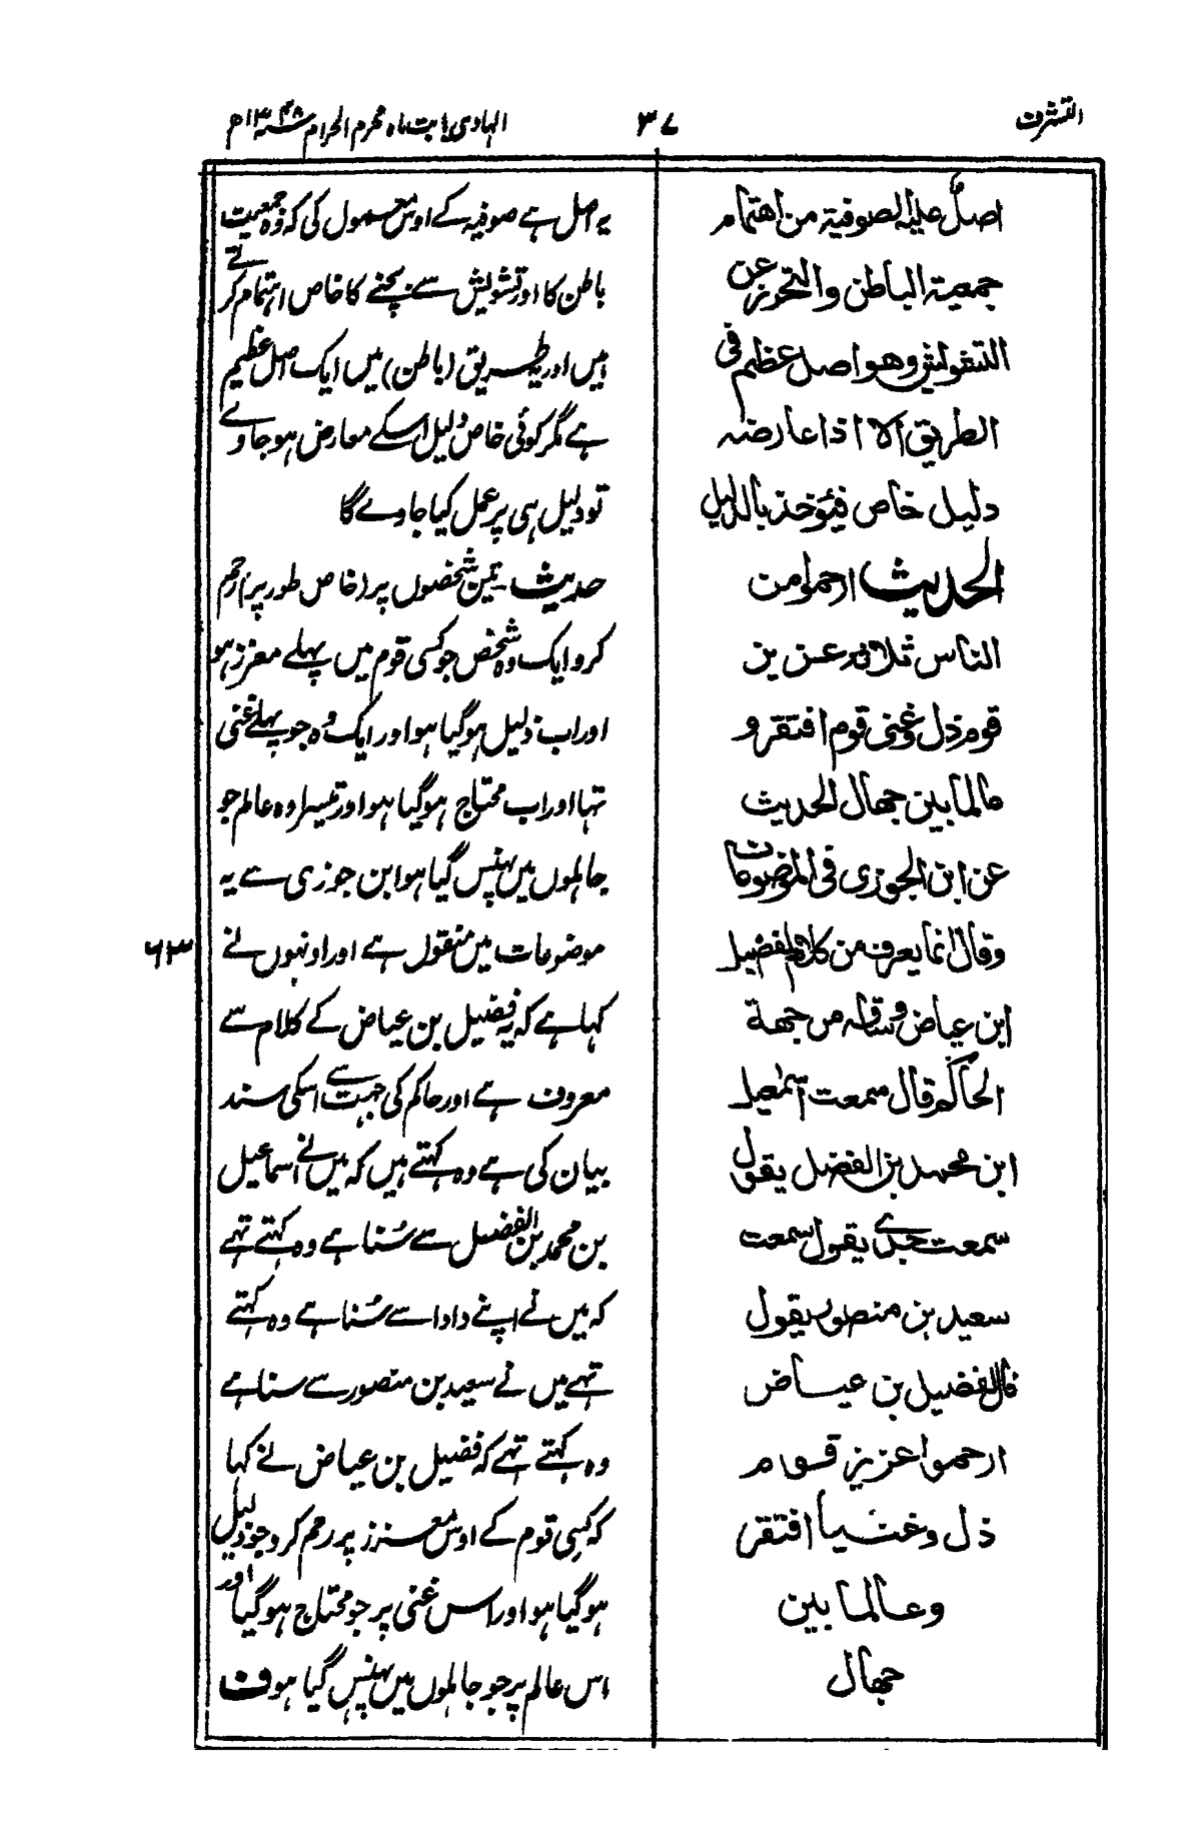 التشرف
۳۷
الہادی بابت ماہ محرم الحرام ۱۳۴۸ھ
اصلٌ علیہ الصوفیۃ من اھتمام
جمعیۃ الباطن والتحرز عن
التشویش وھو اصل عظیم فی
الطریق الا اذا عارضہ
دلیل خاص فیؤخذ بالدلیل
الحدیث ارحموا من
الناس ثلاثۃ عزیز
قوم ذل وغنی قوم افتقر و
عالما بین جھال الحدیث
عن ابن الجوزی فی الموضوعات
وقال انما یعرف من کلام الفضیل
ابن عیاض وساقہ من جھۃ
الحاکم قال سمعت اسمٰعیل
ابن محمد بن الفضل یقول
سمعت جدی یقول سمعت
سعید بن منصور یقول
قال الفضیل بن عیاض
ارحموا عزیز قوم
ذل وغنیا افتقر
وعالما بین
جھال
یہ اصل ہے صوفیہ کے اوس معمول کی کہ وہ جمعیت
باطن کا اور تشویش سے بچنے کا خاص اہتمام کرتے
ہیں اور طریق (باطن) میں ایک اصل عظیم
ہے مگر کوئی خاص دلیل اسکے معارض ہو جاوے
تو دلیل ہی پر عمل کیا جاوے گا
حدیث۔ تین شخصوں پر (خاص طور پر) رحم
کرو ایک وہ شخص جو کسی قوم میں پہلے معزز ہو
اور اب ذلیل ہو گیا ہو اور ایک وہ جو پہلے غنی
تہا اور اب محتاج ہو گیا ہو اور تیسرا وہ عالم جو
جاہلوں میں پہنس گیا ہو ابن جوزی سے یہ
موضوعات میں منقول ہے اور اونہوں نے
۶۳
کہا ہے کہ یہ فضیل بن عیاض کے کلام سے
معروف ہے اور حاکم کی جہت سے اسکی سند
بیان کی ہے وہ کہتے ہیں کہ میں نے اسماعیل
بن محمد بن الفضل سے سُنا ہے وہ کہتے تہے
کہ میں نے اپنے دادا سے سُنا ہے وہ کہتے
تہے میں نے سعید بن منصور سے سنا ہے
وہ کہتے تہے کہ فضیل بن عیاض نے کہا
کہ کسی قوم کے اوس معزز پر رحم کرو جو ذلیل
ہو گیا ہو اور اس غنی پر جو محتاج ہو گیا اور
اس عالم پر جو جاہلوں میں پہنس گیا ہو ف